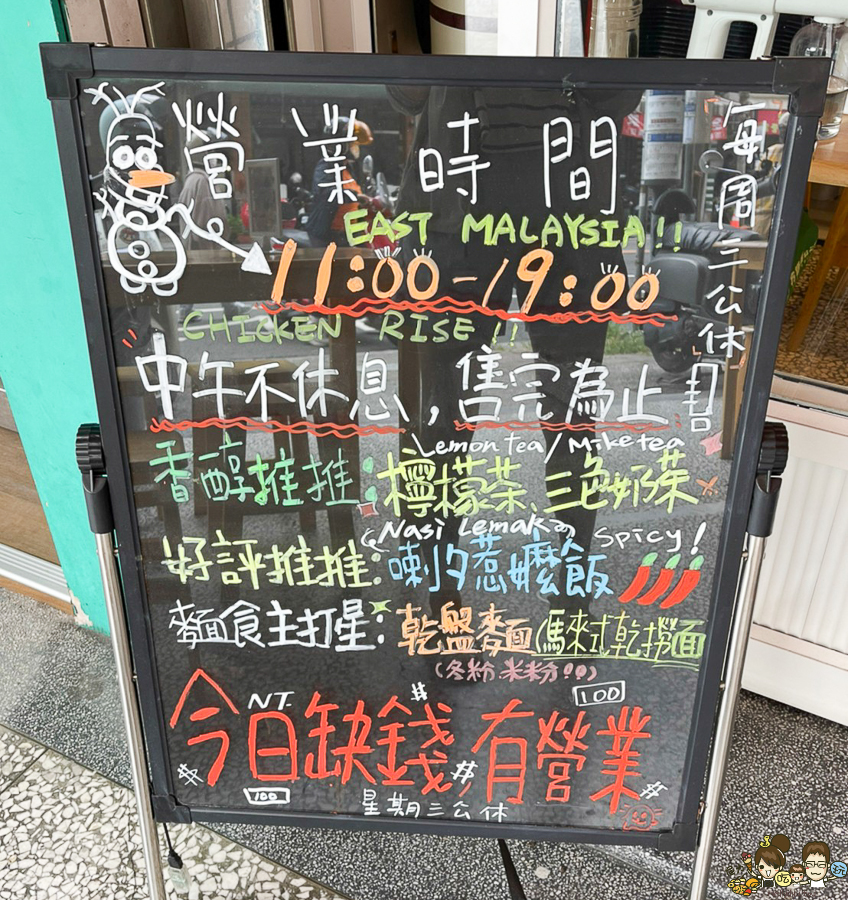 營業時間
每周三公休
EAST MALAYSIA!!
11:00-19:00
CHICKEN RISE!!
中午不休息,售完為止
Lemon tea/Miketea
香醇推推:檸檬茶、三色奶茶
Nasi Lemak Spicy!
好評推推:喇夕惹嬤飯
麵食主打星:乾盤麵(馬來式乾撈麵
(冬粉.米粉!!)
NT. # 100
今日缺錢,有營業
$ 100 # #
星期三公休
吃 玩